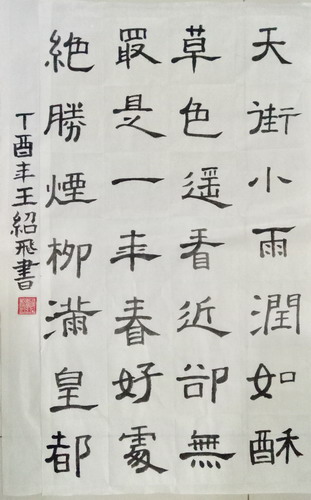 天街小雨潤如酥
草色遥看近卻無
最是一年春好處
絶勝煙柳滿皇都
丁酉年王紹飛書